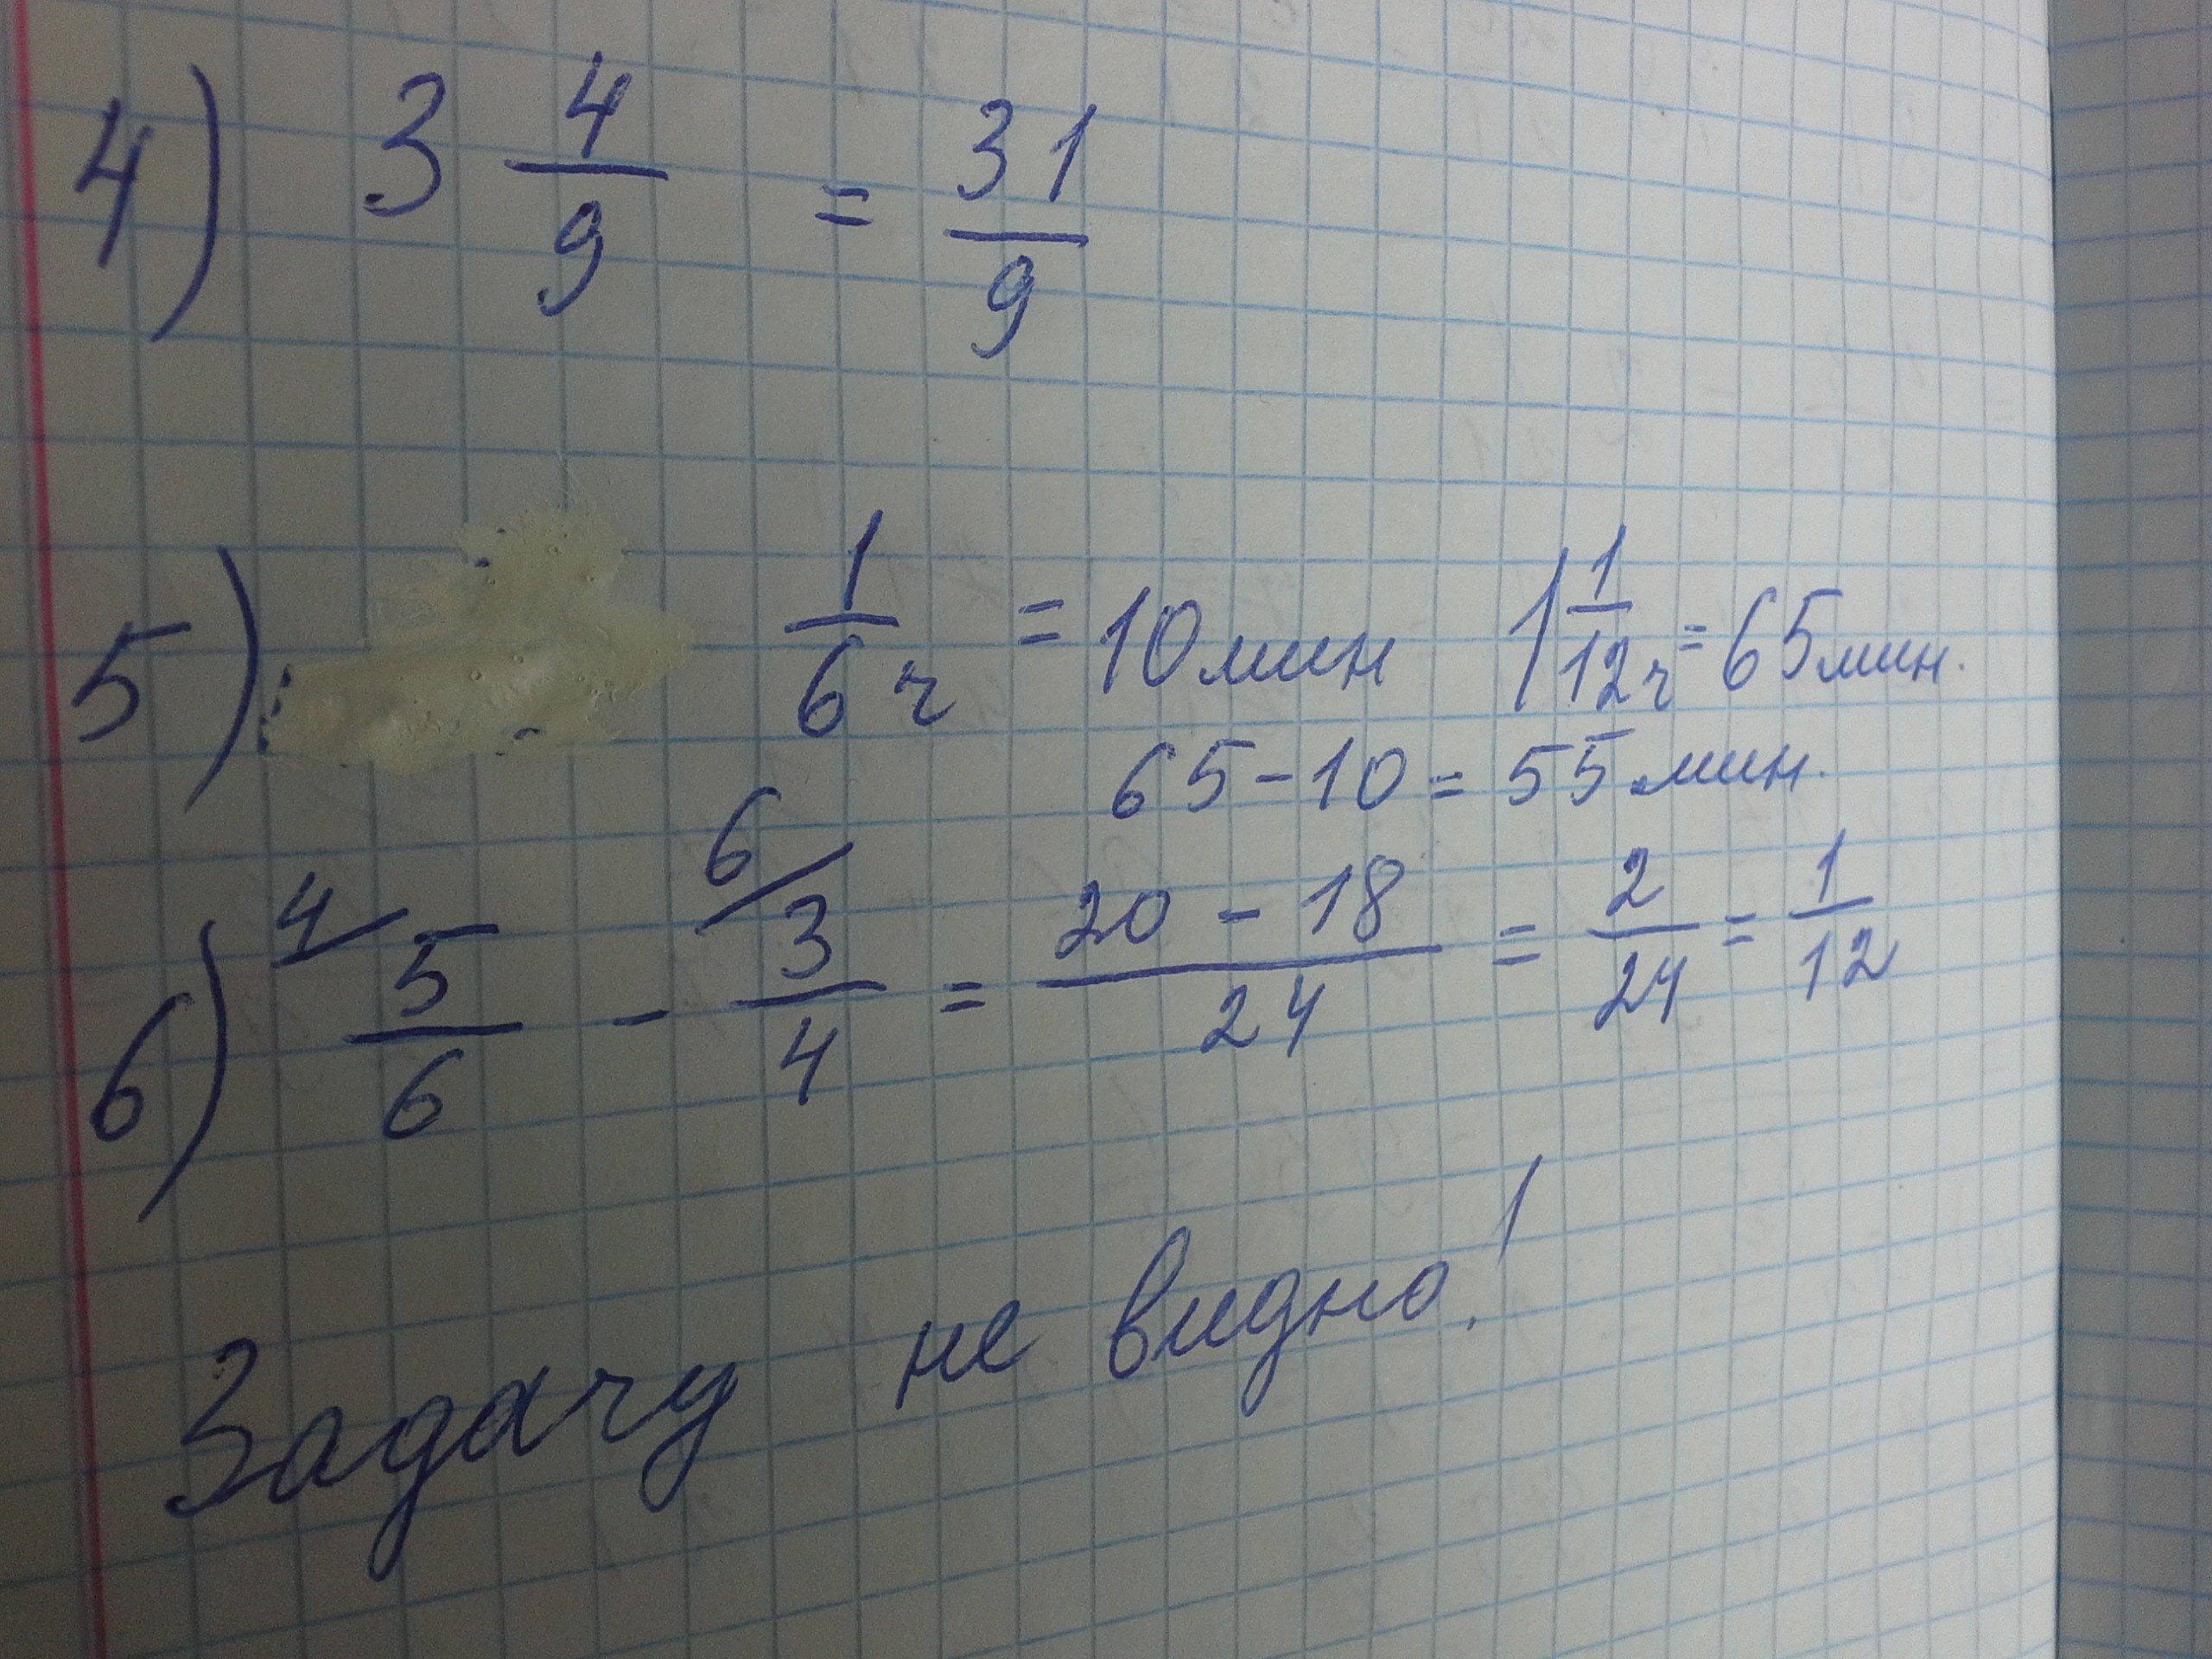 4) 3 4/9 = 31/9
5) 1/6 ч = 10 мин 1 1/12 ч = 65 мин.
65 - 10 = 55 мин.
6) 4/ 5/6 - 6/ 3/4 = 20 - 18/24 = 2/24 = 1/12
Задачу не видно!